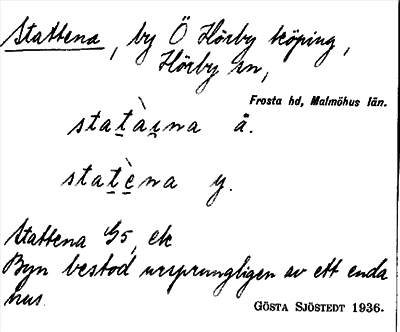 Stattena, by Ö Hörby köping,
Hörby sn,
Frosta hd, Malmöhus län.
statàina ä.
statèna y.
Stattena 4/5, ek
Byn bestod ursprungligen av ett enda
hus.
GÖSTA SJÖSTEDT 1936.